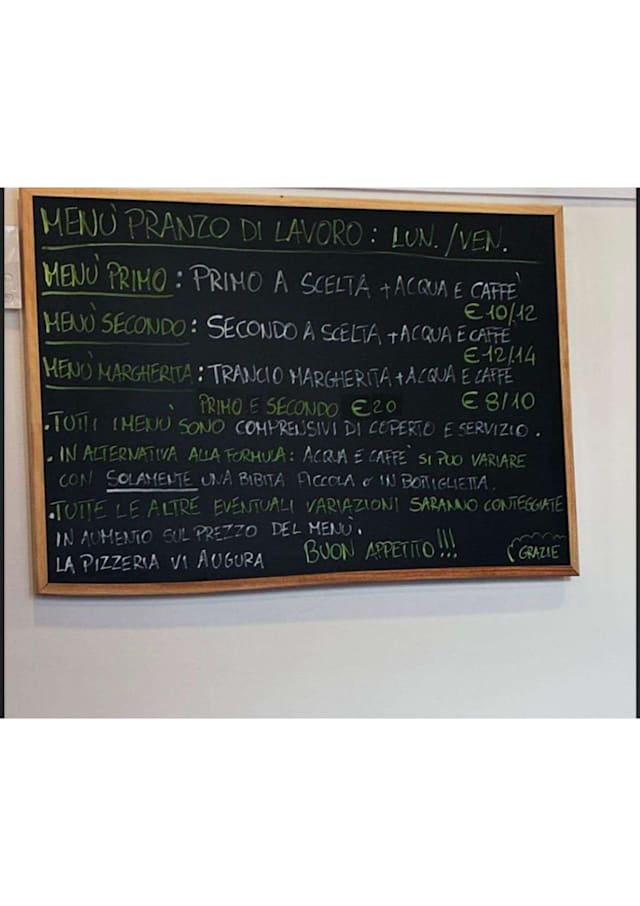 MENÙ PRANZO DI LAVORO: LUN./VEN.
MENÙ PRIMO: PRIMO A SCELTA + ACQUA E CAFFÈ
€10/12
MENÙ SECONDO: SECONDO A SCELTA + ACQUA E CAFFÈ
€12/14
MENÙ MARGHERITA: TRANCIO MARGHERITA + ACQUA E CAFFÈ
PRIMO E SECONDO €20 €8/10
. TUTTI I MENÙ SONO COMPRENSIVI DI COPERTO E SERVIZIO.
. IN ALTERNATIVA ALLA FORMULA: ACQUA E CAFFÈ SI PUÒ VARIARE
CON SOLAMENTE UNA BIBITA PICCOLA O IN BOTTIGLIETTA.
. TUTTE LE ALTRE EVENTUALI VARIAZIONI SARANNO CONTEGGIATE
IN AUMENTO SUL PREZZO DEL MENÙ.
LA PIZZERIA VI AUGURA BUON APPETITO!!! GRAZIE